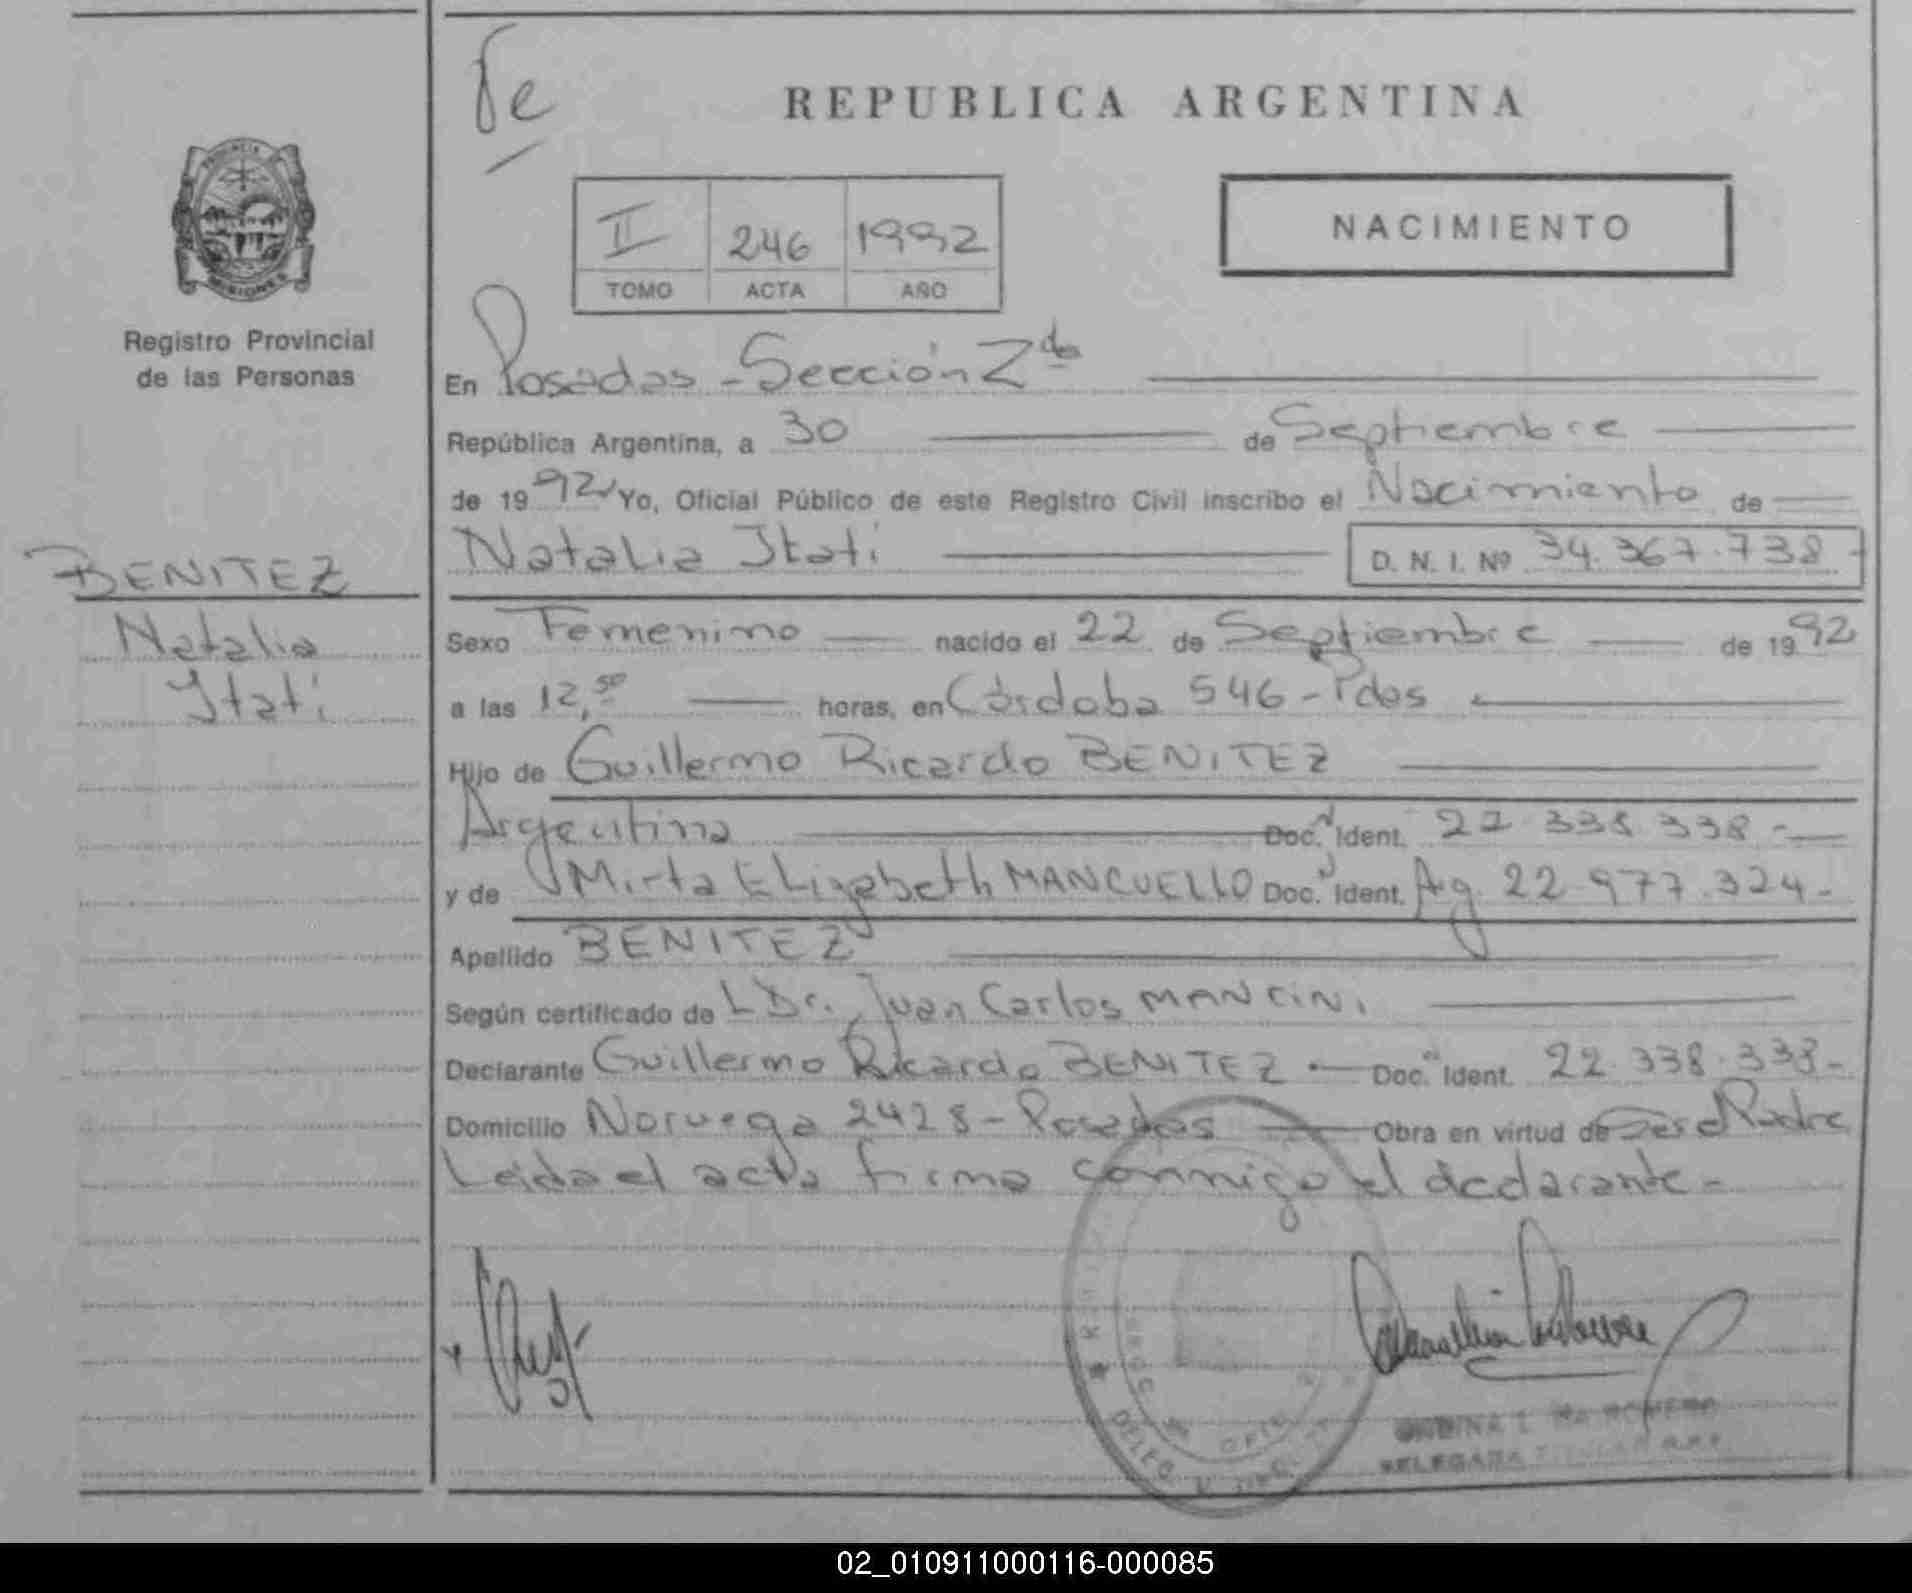 Te
REPUBLICA ARGENTINA
PROVINCIA
MISIONES
Registro Provincial
de las Personas
II 246 1992
TOMO ACTA AÑO
NACIMIENTO
En Posadas - Sección 2da
República Argentina, a 30 de Septiembre
de 1992 Yo, Oficial Público de este Registro Civil inscribo el Nacimiento de
Natalia Itatí D. N. I. Nº 34.367.738-
BENITEZ
Natalia
Itatí
Sexo Femenino nacido el 22 de Septiembre de 1992
a las 12,50 horas, en Córdoba 546 - Pdas
Hijo de Guillermo Ricardo BENITEZ
Argentina Doc. Ident. 22.338.338-
y de Mirta Elizabeth MANCUELLO Doc. Ident. Ag. 22.977.324-
Apellido BENITEZ
Según certificado de L Dr. Juan Carlos MANCINI
Declarante Guillermo Ricardo BENITEZ Doc. Ident. 22.338.338-
Domicilio Noruega 2428 - Posadas Obra en virtud de Ser el Padre
Leída el acta firma conmigo el declarante-
ROMERO
02_010911000116-000085